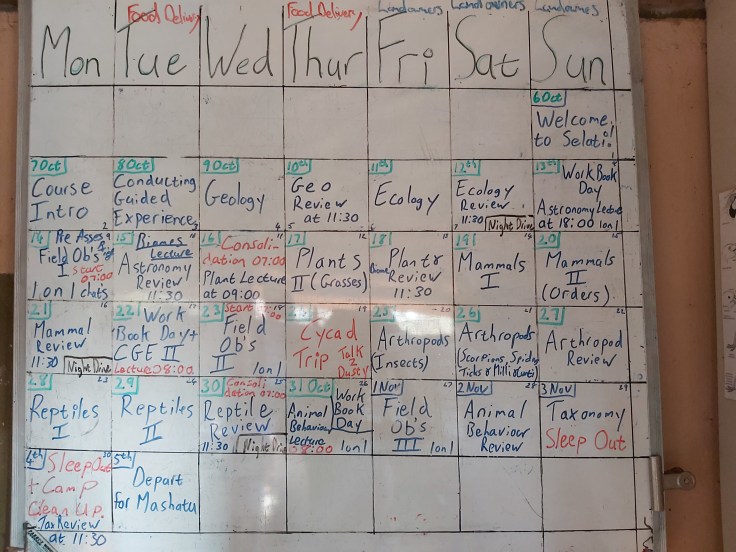 Food Delivery Food Delivery Landowners Landowners Landowners
Mon Tue Wed Thur Fri Sat Sun
6 Oct
Welcome
to Selati!
1
7 Oct
Course
Intro
2
8 Oct
Conducting
Guided
Experiences
3
9 Oct
Geology
4
10th
Geo
Review
at 11:30
5
11th
Ecology
6
12th
Ecology
Review
11:30 Night Drive
7
13th
Work Book
Day
Astronomy Lecture
at 18:00 1 on 1
14 Pre Asses
Field Ob's
I start
07:00
1 on 1 chats
15 Biomes
Lecture
Astronomy
Review
11:30
16 Consoli-
dation 07:00
Plant Lecture
at 09:00
17
Plants
II (Grasses)
18
Plants
Review
11:30
19
Mammals
I
20
Mammals
II
(Orders)
21
Mammal
Review
11:30 Night Drive
16
22 Work
Book Day +
CGE II
Lecture 08:00
17
23 Start
Field
Ob's
II 1 on 1
18
Cycad
Trip Talk
2
Dusty
19
25
Arthropods
(Insects)
20
26
Arthropods
(Scorpions, Spider
Ticks & Millipedes)
21
27
Arthropod
Review
22
28
Reptiles
I
23
29
Reptiles
II
30 Consoli
dation 07:00
Reptile
Review
11:30 Night Drive
31 Oct
Work
Book
Day
Animal
Behaviour
Lecture
08:00 1 on 1
26
1 Nov
Field
Ob's
III 1 on 1
27
2 Nov
Animal
Behaviour
Review
28
3 Nov
Taxonomy
Sleep Out
29
4th
Sleep Out
+ Camp
Clean Up
Tax Review
at 11:30
30
5th
Depart
for Mashatu